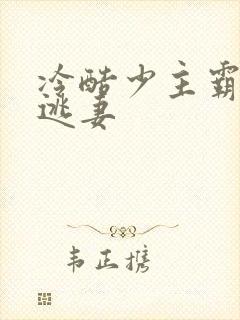 冷酷少主霸
逃妻
韦正携